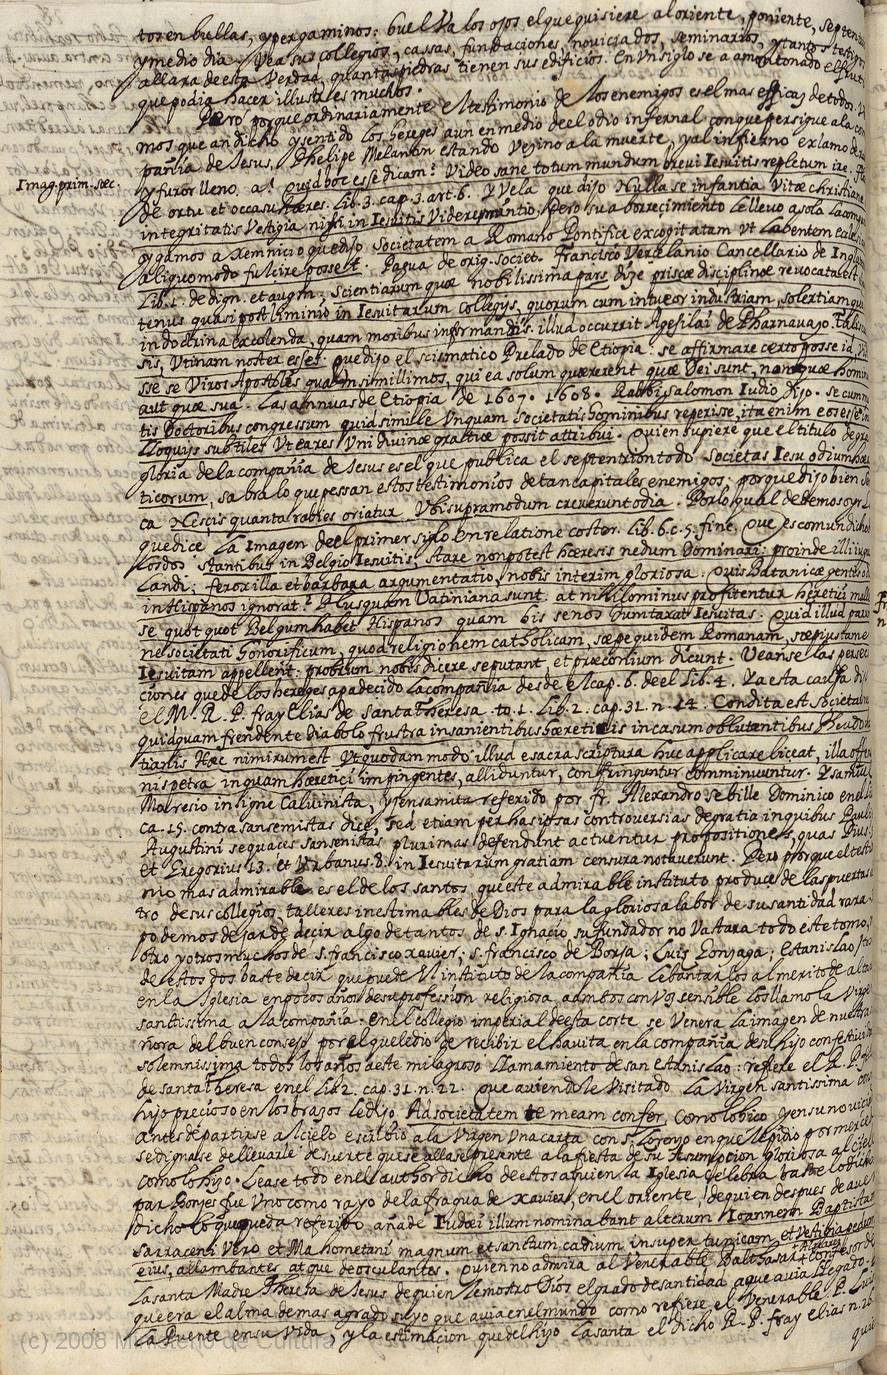 tos en bullas, y pergaminos: buelva los ojos el que quisiere al oriente, poniente, septen
y medio dia. Vea sus collegios, cassas, fundaciones, noviciados, seminarios, y tantos testigos
allara de esta Verdad, quantas piedras tienen sus edificios. En Un siglo se a amontonado el fruto
que podia hacer illustres muchos.
Pero porque ordinariamente el testimonio de los enemigos es el mas efficaz de todos
mos que an dicho y sentido los hereges aun en medio de el odio infernal con que persigue a la com
pañia de Jesus. Phelipe Melanton estando Vezino a la muerte, y al infierno exclamo de
Imag. prim. sæc.
y furor lleno, a! quid hoc esse dicam? Video sane totum mundum brevi Iesuitis repletum ire.
de ortu et occasu hæres. Lib. 3. cap. 3. art. 6. Y Vela que dijo Nulla se infantia Vitæ christianæ
integritatis Vestigia nisi in Iesuitis Videre. Pero su aborrecimiento le llevo a sola la com
y gamos a Kemnicio que dijo Societatem a Romano Pontifice excogitatam ut Labentem
aliquo modo fulcire posset. Padua de orig. societ. Francisco Verulanio Cancellario de Ingla
Lib. 1. de dign. et augm. scientiarum quæ nobilissima pars dize priscæ disciplinæ revocata est
tenus quasi post liminio in Iesuitarum Collegijs, quorum cum intueor industriam, solertiamque
in doctrina excolenda, quam moribus informandis. illud occurrit Agesilai de Pharnavazo. Talis
sis, Utinam noster esses. que dijo el scismatico Prelado de Etiopia: se affirmare certo posse id,
sse se Viros Apostolis quam simillimos, qui ea solum quærerent quæ Dei sunt, non quæ homin
aut quæ sua. Las annuas de Etiopia de 1607. 1608. Rabbi Salomon Iudio dijo. se cum
tis Doctoribus congressum quid simile Unquam Societatis hominibus reperisse, ita enim eos esse
lloquijs subtiles Ut ea res Uni divinæ gratiæ possit attribui. Quien supiere que el titulo de
gloria de la compañia de Jesus es el que publica el septentrion todo Societas Iesu odium hæ
ticorum, sabra lo que pessan estos testimonios de tan capitales enemigos; porque dijo bien Se
ca Nescis quanta rabies oriatur, Ubi supra modum creverunt odia. Por lo qual debemos oyr
que dice La Imagen de el primer siglo en relatione coster. Lib. 6. c. 5. fine. Que es comun dicho
Stantibus in Belgio Iesuitis, stare non potest hæresis nedum Dominari: proinde illi
Landi; ferox illa et barbara argumentatio, nobis interim gloriosa. Quis Batavicæ gentis
in Hispanos ignorat? Nusquam Vatiniana sunt. at nihilominus profitentur heretici malle
se quot quot Belgium habet Hispanos quam bis senos dumtaxat Iesuitas. Quid illud
ne societati honorificum, quod religionem catholicam, sæpe quidem Romanam, sæpius tamen
Iesuitam appellent. probrum nobis dicere se putant, et præconium dicunt. Veanse las persec
ciones que de los hereges a padecido la compañia desde el cap. 6. de el Lib. 4. Ya esta causa
el M. R. P. fray Elias de Santa Theresa. to. 1. Lib. 2. cap. 31. n. 14. Condita est Societas
quidquam frendente diabolo frustra insanientibus hæreticis in casum oblutantibus Pseudo
tianis Hæc nimirum est Ut quodam modo illud e sacra scriptura huc applicare liceat, illa offen
nis petra in quam hæretici impingentes, alliduntur, confringuntur comminuuntur.
Malresio insigne Calvinista, y Jensanista referido por fr. Alexandro Sebille Dominico en el
ca. 15. contra Jansenistas dice, sed etiam per has ipsas controversias de gratia in quibus Pauli
Augustini sequaces Jansenistas plurimas defendunt ac tuentur propositiones, quas Pius
et Gregorius 13. et Urbanus. 8. in Iesuitarum gratiam censura notaverunt. Pero porque el testi
nio mas admirable es el de los santos, que este admirable instituto produce de las puertas
tro de sus collegios, talleres inestimables de Dios para la gloriosa labor de su santidad rara
podemos dejar de decir algo de tantos de s. Ignacio su fundador no Vastara todo este tomo,
otro y otros muchos de s. francisco xavier; s. francisco de Borja; Luis Gonzaga; Estanislao,
de estos dos baste decir que puede el instituto de la compañia lebantarlos al merito de al
en la Iglesia en pocos años de su profession religiosa, a ambos con Voz sensible los llamo la Virgen
santissima a la compañia: en el collegio imperial de esta corte se Venera la imagen de nuestra
ñora del buen consejo por el que le dio de recibir el havito en la compañia de su hijo con festividad
solemnissima todos los años a este milagroso llamamiento de san Estanislao: refiere el R. P. f
de santa Theresa en el Lib 2. cap. 31. n. 22. que aviendole Visitado la Virgen santissima con
hijo precioso en los brazos le dijo Ad societatem te meam confer. Como lo hico, y en su novici
antes de partirse al cielo escribio a la Virgen Una carta con s. Lorenzo en que le pidio por merced
se dignase de llevarle de suerte que se allase presente a la fiesta de su Assumpcion gloriosa al cielo
como lo hijo. Lease todo en el author dicho de estos a quien la Iglesia celebra baste lo dicho
par Bonjes fue Uno como rayo de la fragua de Xavier, en el oriente, de quien despues de aver
dicho lo que queda referido, añade Iudæi illum nominabant alterum Ioannem Baptistam
sarraceni Vero et Mahometani magnum et santum cadium insuper tunicam, et Vestigia pedum
eius, allambantes atque deosculantes. Quien no admira al Venerable Balthasar Alvarez confesor de
la santa Madre Theresa de Jesus de quien le mostro Dios el grado de santidad a que avia llegado.
que era el alma de mas agrado suyo que avia en el mundo como refiere el Venerable P. Luis
La Puente en su Vida, y la estimacion que del hijo la santa el dicho R. P. fray Elias n. 26
(c) 2008 Ministerio de Cultura